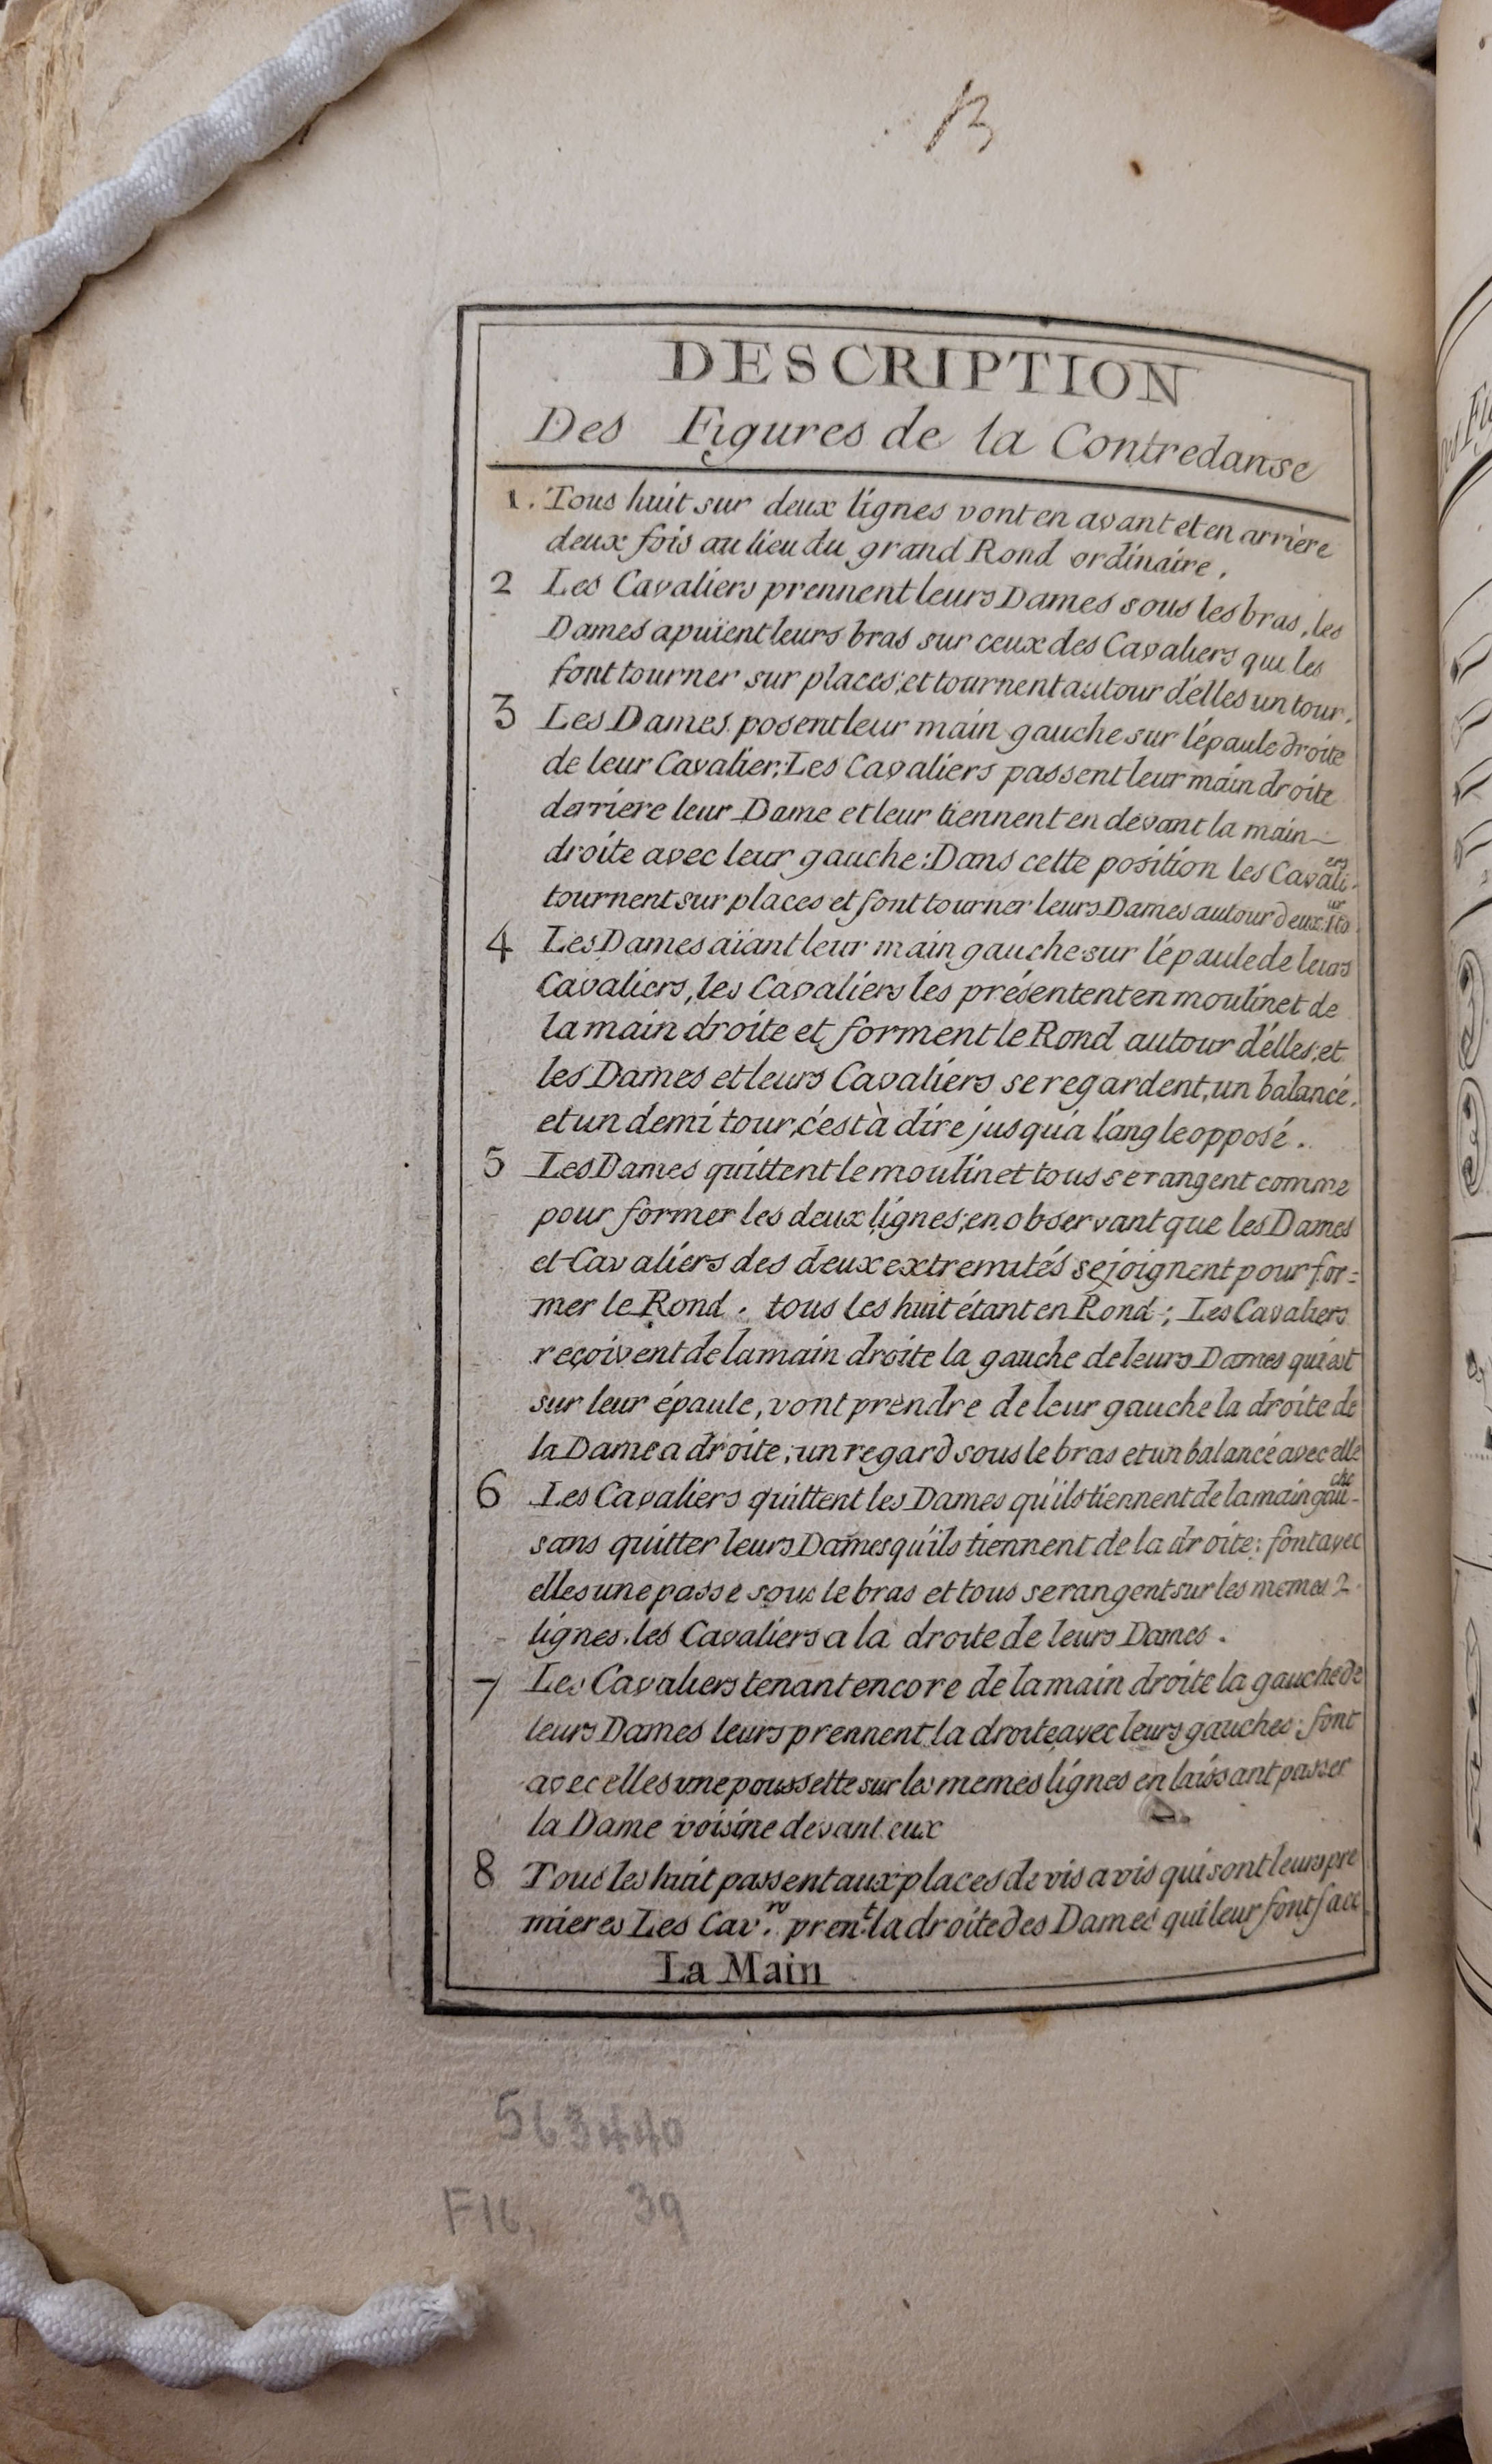 13
DESCRIPTION
Des Figures de la Contredanse
1. Tous huit sur deux lignes vont en avant et en arrière
deux fois au lieu du grand Rond ordinaire.
2 Les Cavaliers prennent leurs Dames sous les bras, les
Dames apuïent leurs bras sur ceux des Cavaliers qui les
font tourner sur places; et tournent autour d'elles un tour.
3 Les Dames posent leur main gauche sur l'épaule droite
de leur Cavalier; Les Cavaliers passent leur main droite
derriere leur Dame et leur tiennent en devant la main
droite avec leur gauche: Dans cette position les Cavaliers
tournent sur places et font tourner leurs Dames autour d'eux. 1 tour
4 Les Dames aïant leur main gauche sur l'épaule de leurs
Cavaliers, les Cavaliers les présentent en moulinet de
la main droite et forment le Rond autour d'elles; et
les Dames et leurs Cavaliers se regardent, un balancé.
et un demi tour, c'est à dire jusqu'a l'angle opposé.
5 Les Dames quittent le moulinet tous se rangent comme
pour former les deux lignes; en observant que les Dames
et Cavaliers des deux extremités se joignent pour for=
mer le Rond. tous les huit étant en Rond; Les Cavaliers
reçoivent de la main droite la gauche de leurs Dames qui est
sur leur épaule, vont prendre de leur gauche la droite de
la Dame a droite; un regard sous le bras et un balancé avec elle
6 Les Cavaliers quittent les Dames qu'ils tiennent de la main gauche
sans quitter leurs Dames qu'ils tiennent de la droite: font avec
elles une passe sous le bras et tous se rangent sur les memes 2.
lignes. les Cavaliers a la droite de leurs Dames.
7 Les Cavaliers tenant encore de la main droite la gauche de
leurs Dames leurs prennent la droite avec leurs gauches; font
avec elles une poussette sur les memes lignes en laissant passer
la Dame voisine devant eux
8 Tous les huit passent aux places de vis a vis qui sont leurs pre
mieres Les Cav.rs pren.t la droite des Dames qui leur font face
La Main
563440
39